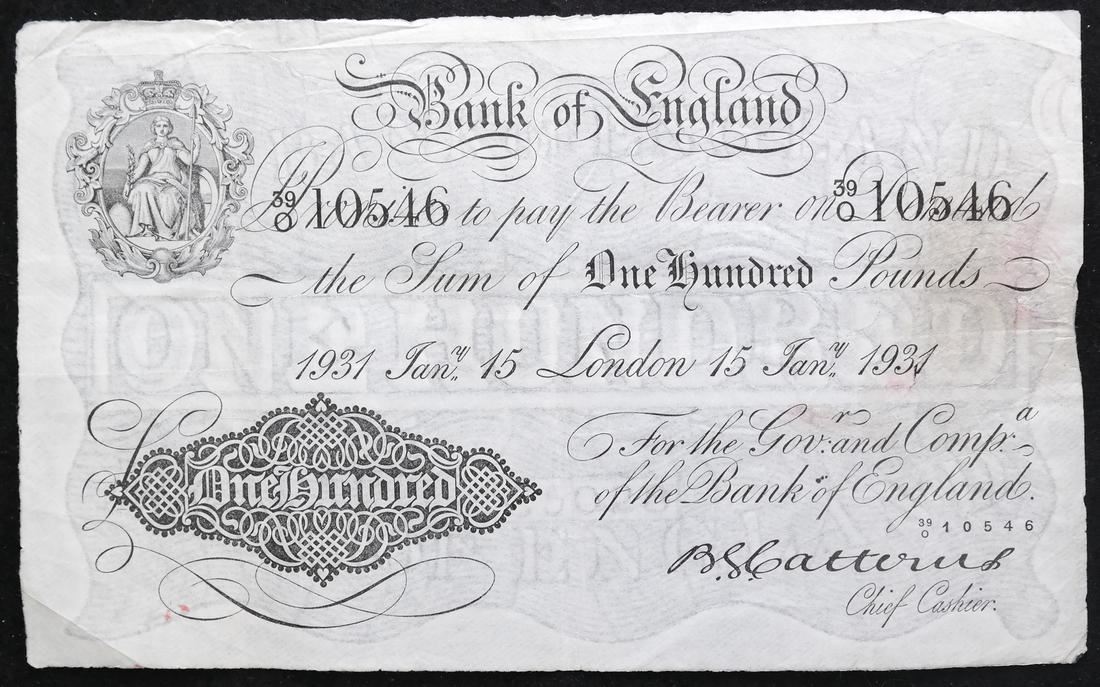 Bank of England
39/O 10546 to pay the Bearer on 39/O 10546
the Sum of One Hundred Pounds
1931 Jan.y 15 London 15 Jan.y 1931
For the Gov.r and Comp.a
of the Bank of England.
One Hundred
39/O 10546
B G Catterns
Chief Cashier.